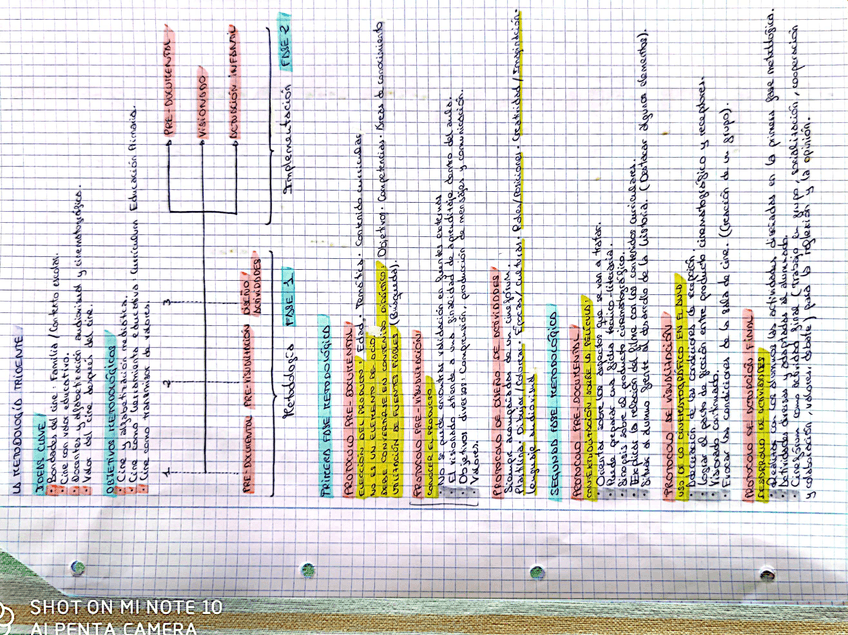 LA METODOLOGÍA TRIDENTE
IDEAS CLAVE
Bondades del cine. Familia / Contexto escolar.
Cine con valor educativo.
Docentes y alfabetización audiovisual y cinematográfica.
Valor del cine después del cine.
OBJETIVOS METODOLÓGICOS
Cine y alfabetización mediática.
Cine como herramienta educativa: Curriculum Educación Primaria.
Cine como transmisor de valores.
1 2 3
PRE-DOCUMENTAL PRE-VISUALIZACIÓN DISEÑO ACTIVIDADES
PRE-DOCUMENTAL
VISIONADO
Metodología FASE 1
Implementación FASE 2
PRIMERA FASE METODOLÓGICA
PROTOCOLO PRE-DOCUMENTAL
ELECCIÓN DEL PRODUCTO: Edad. Temática. Contenido curricular
NO ES UN ELEMENTO DE OCIO.
DEBE CONVERTIRSE EN CONTENIDO DIDÁCTICO: Objetivo. Competencias. Áreas de conocimiento
UTILIZACIÓN DE FUENTES FIABLES (Búsqueda).
PROTOCOLO PRE-VISUALIZACIÓN
CONOCER EL PRODUCTO
No se puede encontrar validación en fuentes externas
El visionado atiende a una finalidad de aprendizaje dentro del aula.
Objetivos diversos: Comprensión, producción de mensajes y comunicación.
Valores.
PROTOCOLO DE DISEÑO DE ACTIVIDADES
Siempre acompañadas de un cinefórum.
Plastilina. Dibujar / Colorear. Épocas / Culturas. Roles / Posiciones. Creatividad / Imaginación.
Lenguaje audiovisual
SEGUNDA FASE METODOLÓGICA
PROTOCOLO PRE-DOCUMENTAL
CONTEXTUALIZACIÓN SOBRE LA PELÍCULA
Orientar sobre los aspectos que se van a tratar.
Puede preparar una ficha técnico-literaria.
Sinopsis sobre el producto cinematográfico.
Explicar la relación del filme con los contenidos curriculares.
Situar al alumno frente al desarrollo de la historia. (Destacar algunos elementos).
PROTOCOLO DE VISUALIZACIÓN
USO DE LO CINEMATOGRÁFICO EN EL AULA
Adecuación de las condiciones de recepción.
Lograr el pacto de ficción entre producto cinematográfico y receptores.
Visionado continuado.
Evocar las condiciones de la sala de cine. (creación de un grupo).
PROTOCOLO DE ACTUACIÓN FINAL
DESARROLLO DE ACTIVIDADES
Realizar con los alumnos las actividades diseñadas en la primera fase metodológica.
Cinefórum como actividad final (Trabajo en grupo, socialización, cooperación
y colaboración, valores, debate) para la reflexión y la opinión.
SHOT ON MI NOTE 10
AI PENTA CAMERA